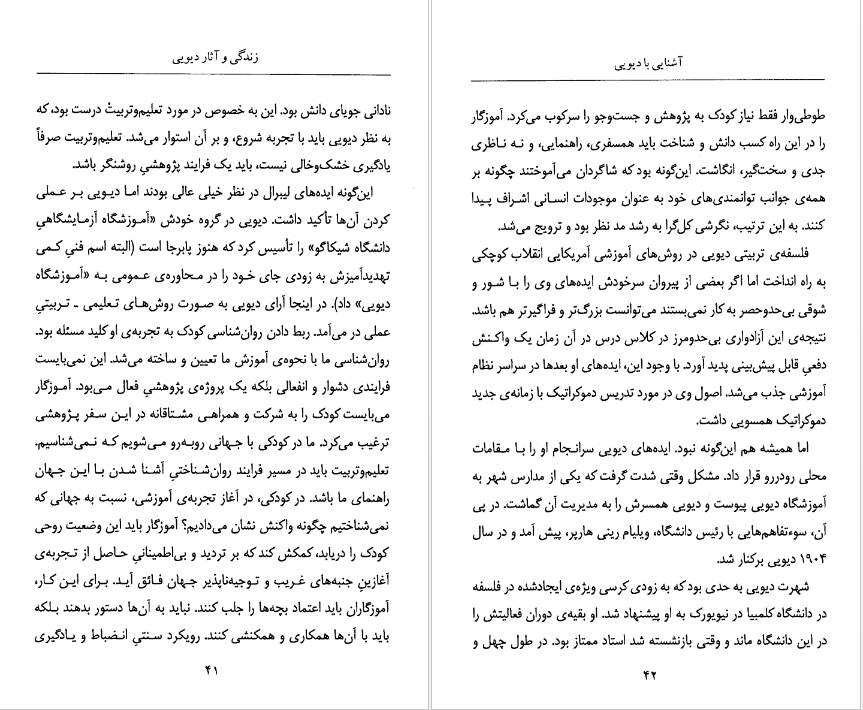 زندگی و آثار دیویی
نادانی جویای دانش بود. این به خصوص در مورد تعلیم‌وتربیتْ درست بود، که
به نظر دیویی باید با تجربه شروع، و بر آن استوار می‌شد. تعلیم‌وتربیت صرفاً
یادگیری خشک‌وخالی نیست، باید یک فرایند پژوهشیِ روشنگر باشد.
این‌گونه ایده‌های لیبرال در نظر خیلی عالی بودند اما دیویی بر عملی
کردن آن‌ها تأکید داشت. دیویی در گروه خودش «آموزشگاه آزمایشگاهیِ
دانشگاه شیکاگو» را تأسیس کرد که هنوز پابرجا است (البته اسم فنیِ کمی
تهدیدآمیزش به زودی جای خود را در محاوره‌ی عمومی به «آموزشگاه
دیویی» داد). در اینجا آرای دیویی به صورت روش‌های تعلیمی ـ تربیتیِ
عملی در می‌آمد. ربط دادن روان‌شناسی کودک به تجربه‌ی او کلید مسئله بود.
روان‌شناسی ما با نحوه‌ی آموزش ما تعیین و ساخته می‌شد. این نمی‌بایست
فرایندی دشوار و انفعالی بلکه یک پروژه‌ی پژوهشیِ فعال می‌بود. آموزگار
می‌بایست کودک را به شرکت و همراهی مشتاقانه در این سفر پژوهشی
ترغیب می‌کرد. ما در کودکی با جهانی روبه‌رو می‌شویم که نمی‌شناسیم.
تعلیم‌وتربیت باید در مسیر فرایند روان‌شناختیِ آشنا شدن با این جهان
راهنمای ما باشد. در کودکی، در آغاز تجربه‌ی آموزشی، نسبت به جهانی که
نمی‌شناختیم چگونه واکنش نشان می‌دادیم؟ آموزگار باید این وضعیت روحی
کودک را دریابد، کمکش کند که بر تردید و بی‌اطمینانیِ حاصل از تجربه‌ی
آغازینِ جنبه‌های غریب و توجیه‌ناپذیر جهان فائق آید. برای این کار،
آموزگاران باید اعتماد بچه‌ها را جلب کنند. نباید به آن‌ها دستور بدهند بلکه
باید با آن‌ها همکاری و همکنشی کنند. رویکرد سنتیِ انضباط و یادگیری
۴۱
آشنایی با دیویی
طوطی‌وار فقط نیاز کودک به پژوهش و جست‌وجو را سرکوب می‌کرد. آموزگار
را در این راه کسب دانش و شناخت باید همسفری، راهنمایی، و نه ناظری
جدی و سخت‌گیر، انگاشت. این‌گونه بود که شاگردان می‌آموختند چگونه بر
همه‌ی جوانب توانمندی‌های خود به عنوان موجودات انسانی اشراف پیدا
کنند. به این ترتیب، نگرشی کل‌گرا به رشد مد نظر بود و ترویج می‌شد.
فلسفه‌ی تربیتی دیویی در روش‌های آموزشی آمریکایی انقلاب کوچکی
به راه انداخت اما اگر بعضی از پیروان سرخودش ایده‌های وی را با شور و
شوقی بی‌حدوحصر به کار نمی‌بستند می‌توانست بزرگ‌تر و فراگیرتر هم باشد.
نتیجه‌ی این آزادواری بی‌حدومرز در کلاس درس در آن زمان یک واکنش
دفعیِ قابل پیش‌بینی پدید آورد. با وجود این، ایده‌های او بعدها در سراسر نظام
آموزشی جذب می‌شد. اصول وی در مورد تدریس دموکراتیک با زمانه‌ی جدید
دموکراتیک همسویی داشت.
اما همیشه هم این‌گونه نبود. ایده‌های دیویی سرانجام او را با مقامات
محلی رودررو قرار داد. مشکل وقتی شدت گرفت که یکی از مدارس شهر به
آموزشگاه دیویی پیوست و دیویی همسرش را به مدیریت آن گماشت. در پی
آن، سوءتفاهم‌هایی با رئیس دانشگاه، ویلیام رینی هارپر، پیش آمد و در سال
۱۹۰۴ دیویی برکنار شد.
شهرت دیویی به حدی بود که به زودی کرسی ویژه‌ی ایجادشده در فلسفه
در دانشگاه کلمبیا در نیویورک به او پیشنهاد شد. او بقیه‌ی دوران فعالیتش را
در این دانشگاه ماند و وقتی بازنشسته شد استاد ممتاز بود. در طول چهل و
۴۲